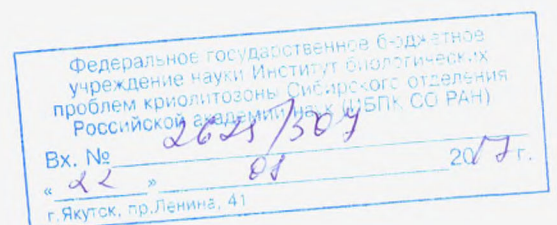 Федеральное государственное бюджетное
учреждение науки Институт биологических
проблем криолитозоны Сибирского отделения
Российской академии наук (ИБПК СО РАН)
Вх. №
« 22 » 2017 г.
г.Якутск, пр.Ленина, 41